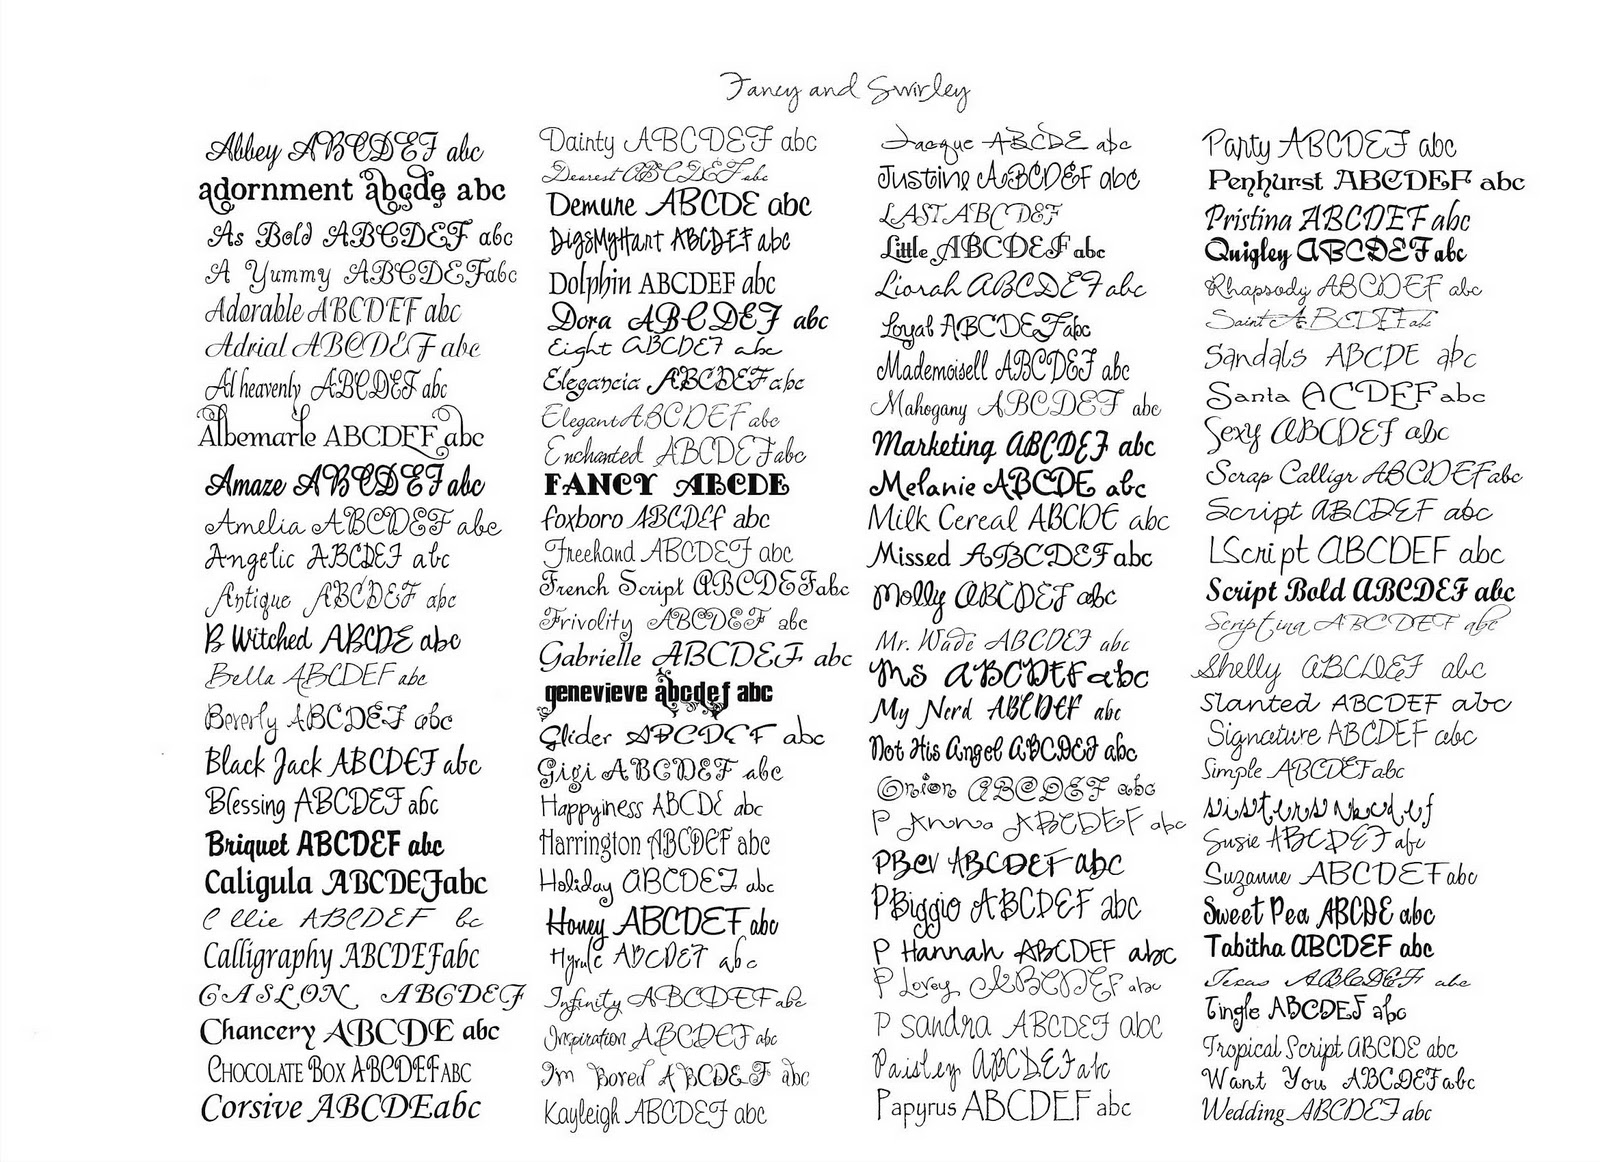 Fancy and Swirley
Abbey ABCDEF abc
adornment abcde abc
As Bold ABCDEF abc
A Yummy ABCDEFabc
Adorable ABCDEF abc
Adrial ABCDEF abc
Al heavenly ABCDEF abc
Albemarle ABCDEF abc
Amaze ABCDEF abc
Amelia ABCDEF abc
Angelic ABCDEF abc
Antique ABCDEF abc
B Witched ABCDE abc
Bella ABCDEF abc
Beverly ABCDEF abc
Black Jack ABCDEF abc
Blessing ABCDEF abc
Briquet ABCDEF abc
Caligula ABCDEFabc
C llie ABCDEF bc
Calligraphy ABCDEFabc
CASLON ABCDEF
Chancery ABCDE abc
CHOCOLATE BOX ABCDEF ABC
Corsive ABCDEabc
Dainty ABCDEF abc
Dearest ABCDEF abc
Demure ABCDE abc
DigsMyHart ABCDEF abc
Dolphin ABCDEF abc
Dora ABCDEF abc
Eight ABCDEF abc
Elegancia ABCDEFabc
Elegant ABCDEF abc
Enchanted ABCDEFabc
FANCY ABCDE
foxboro ABCDEF abc
Freehand ABCDEF abc
French Script ABCDEFabc
Frivolity ABCDEF abc
Gabrielle ABCDEF abc
genevieve abcdef abc
Glider ABCDEF abc
Gigi ABCDEF abc
Happyiness ABCDE abc
Harrington ABCDEF abc
Holiday ABCDEF abc
Honey ABCDEF abc
Hyrule ABCDEF abc
Infinity ABCDEFabc
Inspiration ABCDEF abc
I'm Bored ABCDEF abc
Kayleigh ABCDEF abc
Jacque ABCDE abc
Justine ABCDEF abc
LAST ABCDEF
Little ABCDEF abc
Liorah ABCDEF abc
Loyal ABCDEFabc
Mademoisell ABCDEF abc
Mahogany ABCDEF abc
Marketing ABCDEF abc
Melanie ABCDE abc
Milk Cereal ABCDE abc
Missed ABCDEF abc
Molly ABCDEF abc
Mr. Wade ABCDEF abc
Ms ABCDEF abc
My Nerd ABCDEF abc
Not His Angel ABCDEF abc
Onion ABCDEF abc
P Anna ABCDEF abc
PBev ABCDEF abc
PBiggio ABCDEF abc
P Hannah ABCDEF abc
P Lovey ABCDEF abc
P Sandra ABCDEF abc
Paisley ABCDEF abc
Papyrus ABCDEF abc
Party ABCDEF abc
Penhurst ABCDEF abc
Pristina ABCDEF abc
Quigley ABCDEF abc
Rhapsody ABCDEF abc
Saint A BCDEF abc
Sandals ABCDE abc
Santa ACDEF abc
Sexy ABCDEF abc
Scrap Calligr ABCDEFabc
Script ABCDEF abc
LScript ABCDEF abc
Script Bold ABCDEF abc
Scriptina ABCDEF abc
Shelly ABCDEF abc
Slanted ABCDEF abc
Signature ABCDEF abc
Simple ABCDEFabc
sisters abcdef
Susie ABCDEF abc
Suzanne ABCDEFabc
Sweet Pea ABCDE abc
Tabitha ABCDEF abc
Texas ABCDEF abc
Tingle ABCDEF abc
Tropical Script ABCDE abc
Want You ABCDEFabc
Wedding ABCDEF abc